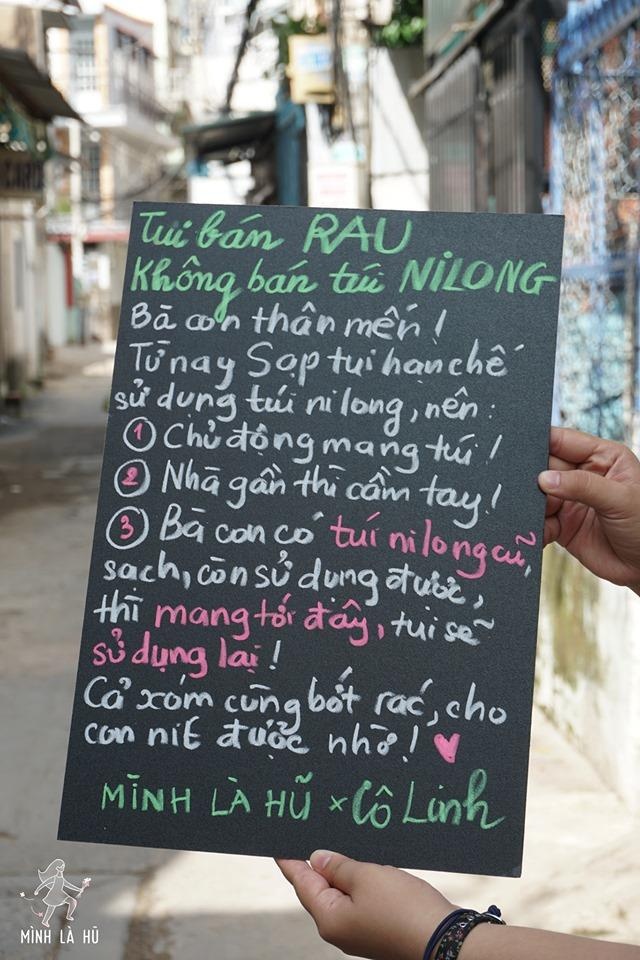 Tui bán RAU
Không bán túi NILONG
Bà con thân mến!
Từ nay Sạp tui hạn chế
sử dụng túi ni long, nên:
1 Chủ động mang túi!
2 Nhà gần thì cầm tay!
3 Bà con có túi ni long cũ,
sạch, còn sử dụng được,
thì mang tới đây, tui sẽ
sử dụng lại!
Cả xóm cùng bớt rác, cho
con nít được nhờ!
MÌNH LÀ HŨ x Cô Linh
MÌNH LÀ HŨ